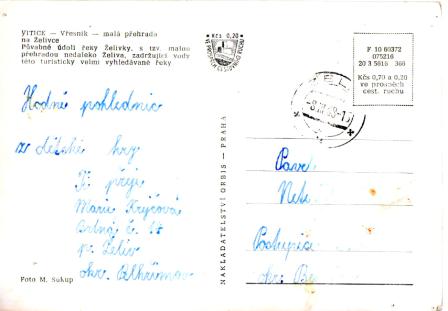 VITICE – Vřesník – malá přehrada
na Želivce
Půvabné údolí řeky Želivky, s tzv. malou
přehradou nedaleko Želiva, zadržující vody
této turisticky velmi vyhledávané řeky
Kčs 0,20
F 10 60372
075216
20 3 5616 366
Kčs 0,70 a 0,20
ve prospěch
cest. ruchu
Hodně pohlednic
z dětské hry
Ti přeje
Marie Krýčová
č. 18
p. Želiv
okr. Pelhřimov
Foto M. Sukup
NAKLADATELSTVÍ ORBIS – PRAHA
Pavel
okr.